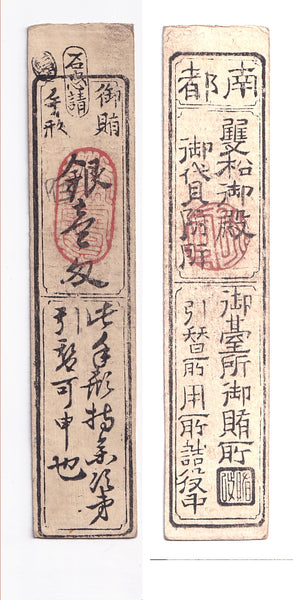 御賄
手形
石忠請
銀壹匁
此手形持参次第
引替可申也
南都
雙松御殿
御代見所
御臺所御賄所
引替所用所詰役中